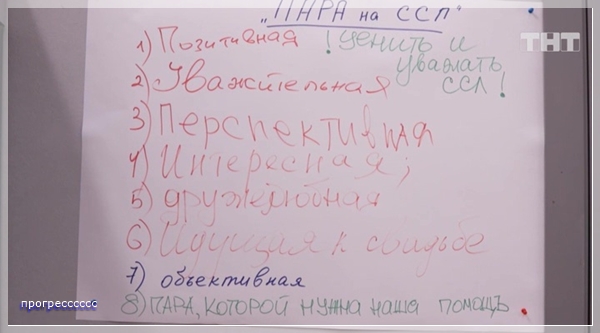 "ПАРА на ССП"
1) Позитивная ! ценить и
уважать
2) Уважительная ССЛ!
3) Перспективная
4) Интересная;
5) дружелюбная
6) Идущая к свадьбе
7) объективная
8) ПАРА, КОТОРОЙ НУЖНА наша помощь.
ТНТ
прогресссссс